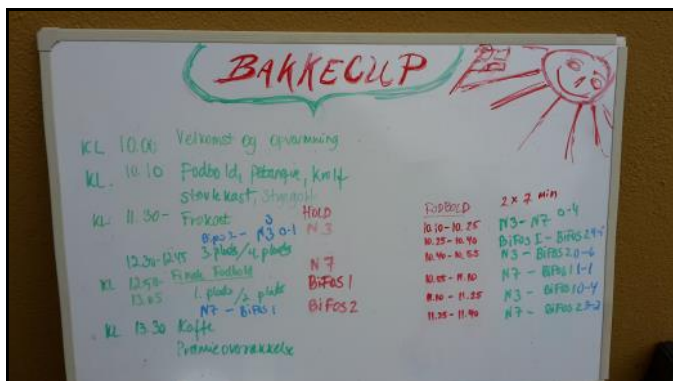 BAKKECUP
KL 10.00 Velkomst og opvarmning
KL. 10.10 Fodbold, Petanque, Krolf
støvlekast,
KL. 11.30- Frokost
N3 0-1
12.30-12.45 3. plads/4. plads
KL 12.50- Finale Fodbold
13.05 1. plads/2 plads
N7 - BiFos 1
KL 13.30 Kaffe
Præmieoverrækkelse
HOLD
N 3
N 7
BiFos 1
BiFos 2
FODBOLD 2 x 7 min
10.10-10.25 N3-N7 0-4
10.25-10.40 BiFos I - BiFos 2
10.40-10.55 N3 - BiFos 2 0-6
10.55-11.10 N7 - BiFos 1 1-1
11.10-11.25 N3 - BiFos 1 0-4
11.25-11.40 N7 - BiFos 2 3-2